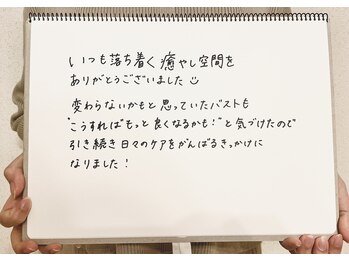 いつも落ち着く癒やし空間を
ありがとうございました☺
変わらないかもと思っていたバストも
"こうすればもっと良くなるかも!"と気づけたので
引き続き日々のケアをがんばるきっかけに
なりました!